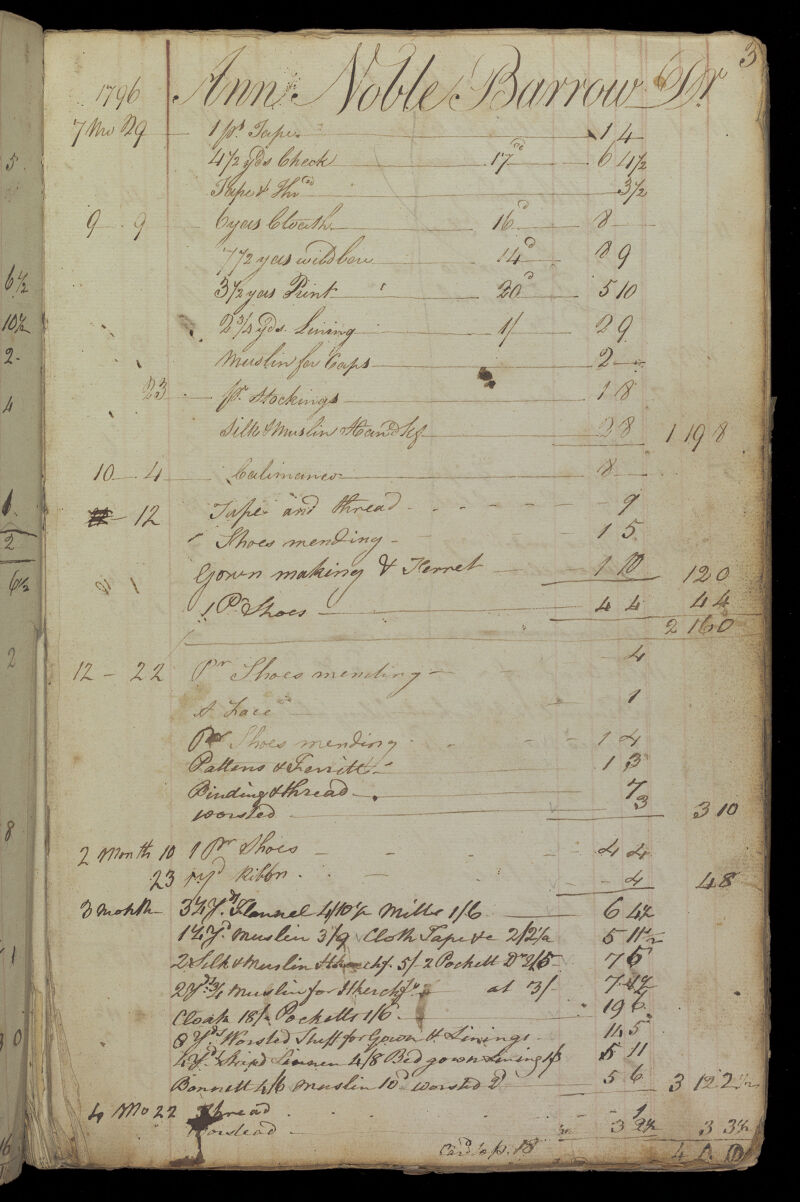 3
1796 Ann Noble Barrow Dr
7 Mo 29 1 ps Tape 1 4
4 1/2 yds Check 17d 6 4 1/2
Tape & Thrd 3 1/2
9 - 9 6 yds Cloath 16d 8
7 1/2 yds wildbore 14d 8 9
3 1/2 yds Print 20d 5 10
2 3/4 yds. Lining 1/ 2 9
Muslin for Caps 2 -
23 pr Stockings 1 8
Silk & Muslin Handkf 3 8 1 19 8
10 - 4 Calimanco 8
12 Tape and thread 9
Shoes mending 1 5
Gown making & Ferret 1 10 12 0
1 Pr Shoes 4 4 4 4
2 16 0
12 - 22 Pr Shoes mending 4
A Lace 1
Pr Shoes mending 1 4
Pattens & Ferritt 1 3
Binding & thread 7
Worsted 3 3 10
2 Month 10 1 Pr Shoes 4 4
23 1 yd Ribbn 4 4 8
3 Month Flannel 4/10 1/2 Mitts 1/6 6 4 1/2
Muslin 3/9 Cloth Tape &c 2/2 1/2 5 11 1/2
2 Silk & Muslin Hkerchf. 5/ 2 Pockett Do 2/5 7 5
Muslin for Hkerchfs at 3/ 7
Cloak 18/ Pocketts 1/6 19 6
8 Yds Worsted Stuff for Gown & Linings 5
Strip'd Linnen 4/8 Bed gown Lining 5 11
Bonnett 4/6 Muslin 10d Worsted 2d 5 6 3 12 2 1/2
4 Mo 22 Thread 1
Worstead 3 2 1/2 3 3 1/2
Card to p. 18 4
5
6 1/2
10 1/2
2 -
4
1
2
6 1/2
2
8
1
0
16